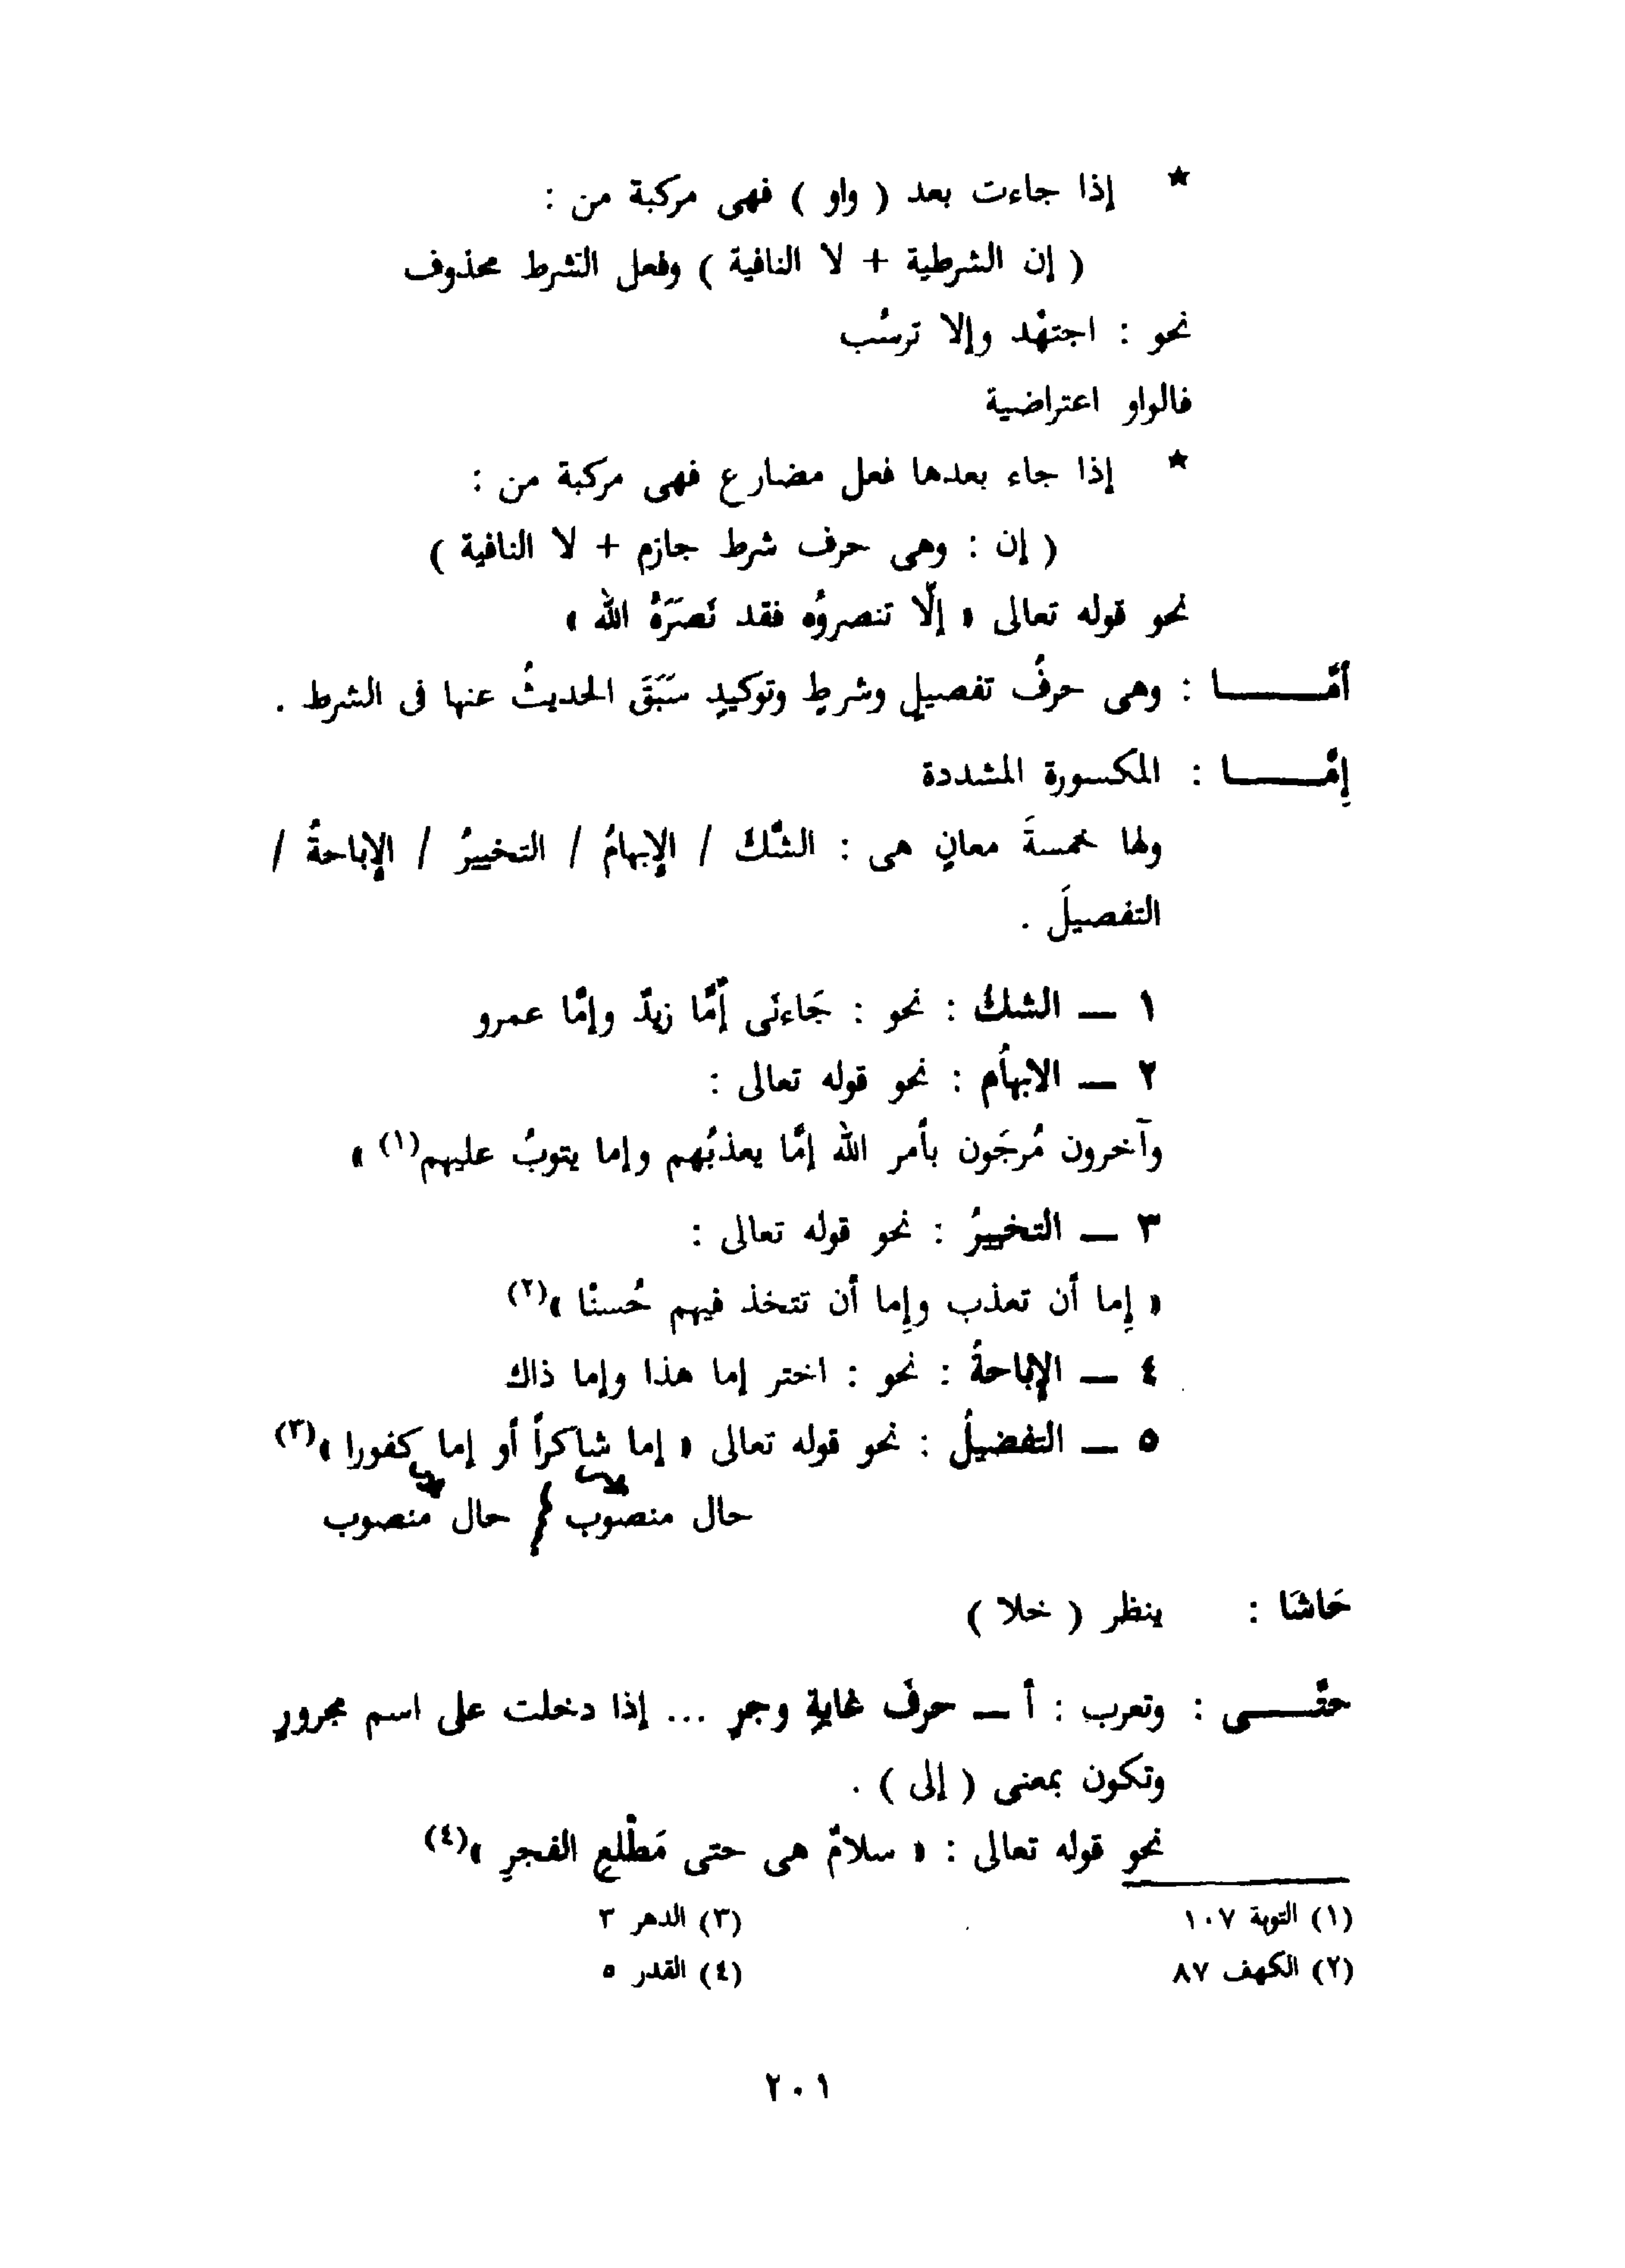 ★ إذا جاءت بعد ( واو ) فهى مركبة من :
( إن الشرطية + لا النافية ) وفعل الشرط محذوف
نحو : اجتهْد وإلا ترسُب
فالواو اعتراضية
★ إذا جاء بعدها فعل مضارع فهى مركبة من :
( إن : وهى حرف شرط جازم + لا النافية )
نحو قوله تعالى « إلّا تنصروُه فقد نَصَرَهُ الله »
أمَّــــــا : وهى حرفُ تفصيلٍ وشرطٍ وتوكيدٍ سَبَقَ الحديثُ عنها فى الشرط .
إمَّــــــا : المكسورة المشددة
ولها خمسةَ معانٍ هى : الشّكَ / الإبهامُ / التخييرُ / الإباحةُ /
التفصيلَ .
١ — الشكُ : نحو : جَاءنَى أمَّا زيدٌ وإمَّا عمرو
٢ — الابهاُم : نحو قوله تعالى :
وآخرون مُرجَون بأمر الله إمَّا يعذبُهم وإما يتوبُ عليهم(١) »
٣ — التخييرُ : نحو قوله تعالى :
« إما أن تعذب وإما أن تتخذ فيهم حُسنْا »(٢)
٤ — الإباحةُ : نحو : اختر إما هذا وإما ذاك
٥ — التفضيلُ : نحو قوله تعالى « إما شاكراً أو إما كفورا »(٣)
حال منصوب } حال منصوب
حَاشَا : ينظر ( خلا )
حتَّــــى : وتعرب : أ — حرفَ غايةٍ وجرٍ ... إذا دخلت على اسم مجرورٍ
وتكون بمعنى ( إلى ) .
نحو قوله تعالى : « سلامٌ هى حتى مَطْلعِ الفجرِ »(٤)
(١) التوبة ١٠٧
(٣) الدهر ٣
(٢) الكهف ٨٧
(٤) القدر ٥
٢٠١